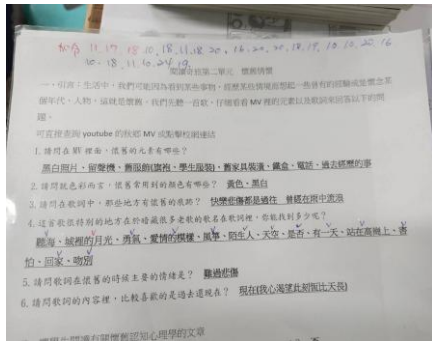 加分 11. 17. 18. 10. 18. 11. 18. 20. 16. 20. 20. 18. 19. 10. 10. 20. 16
10. 18. 11. 10. 24. 19.
閱讀奇拍第二單元 懷舊情懷
一、引言:生活中,我們可能因為看到某些事物、經歷某些情境而想起一些過有的經驗或並懷念某
個年代、人物,這就是懷舊。我們先聽一首歌,仔細看看 MV 裡的元素以及歌詞來回答以下的問
題。
可直接查詢 youtube 的 MV 或點擊校網連結
1.請問在 MV 裡面,懷舊的元素有哪些?
黑白照片、留聲機、舊服飾(旗袍、學生服裝)、舊家具裝潢、鐵盒、電話、過去經歷的事
2.請問就色彩而言,懷舊常用到的顏色有哪些? 黃色、黑白
3.請問在歌詞中,那些地方有懷舊的痕跡? 快樂悲傷都是過往 曾經在雨中流浪
4.這首歌很特別的地方在於暗藏很多老歌的歌名在歌詞裡,你能找到多少呢?
聽海、城裡的月光、勇氣、愛情的模樣、風箏、陌生人、天空、是否、有一天、站在高崗上、害
怕、回家、吻別
5.請問歌詞在懷舊的時候主要的情緒是? 難過悲傷
6.請問歌詞的內容裡,比較喜歡的是過去還現在? 現在(我心渴望此刻恆比天長)
有關懷舊認知心理學的文章